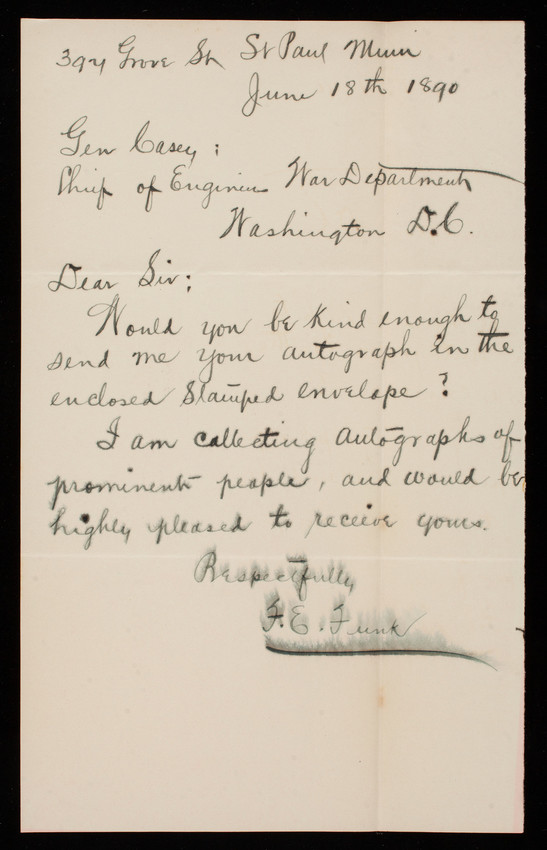 394 Grove St St Paul Minn
June 18th 1890
Gen Casey;
Chief of Engineers War Department
Washington D.C.
Dear Sir;
Would you be kind enough to
send me your autograph in the
enclosed stamped envelope?
I am collecting autographs of
prominent people, and would be
highly pleased to receive yours.
Respectfully
F.E. Funk